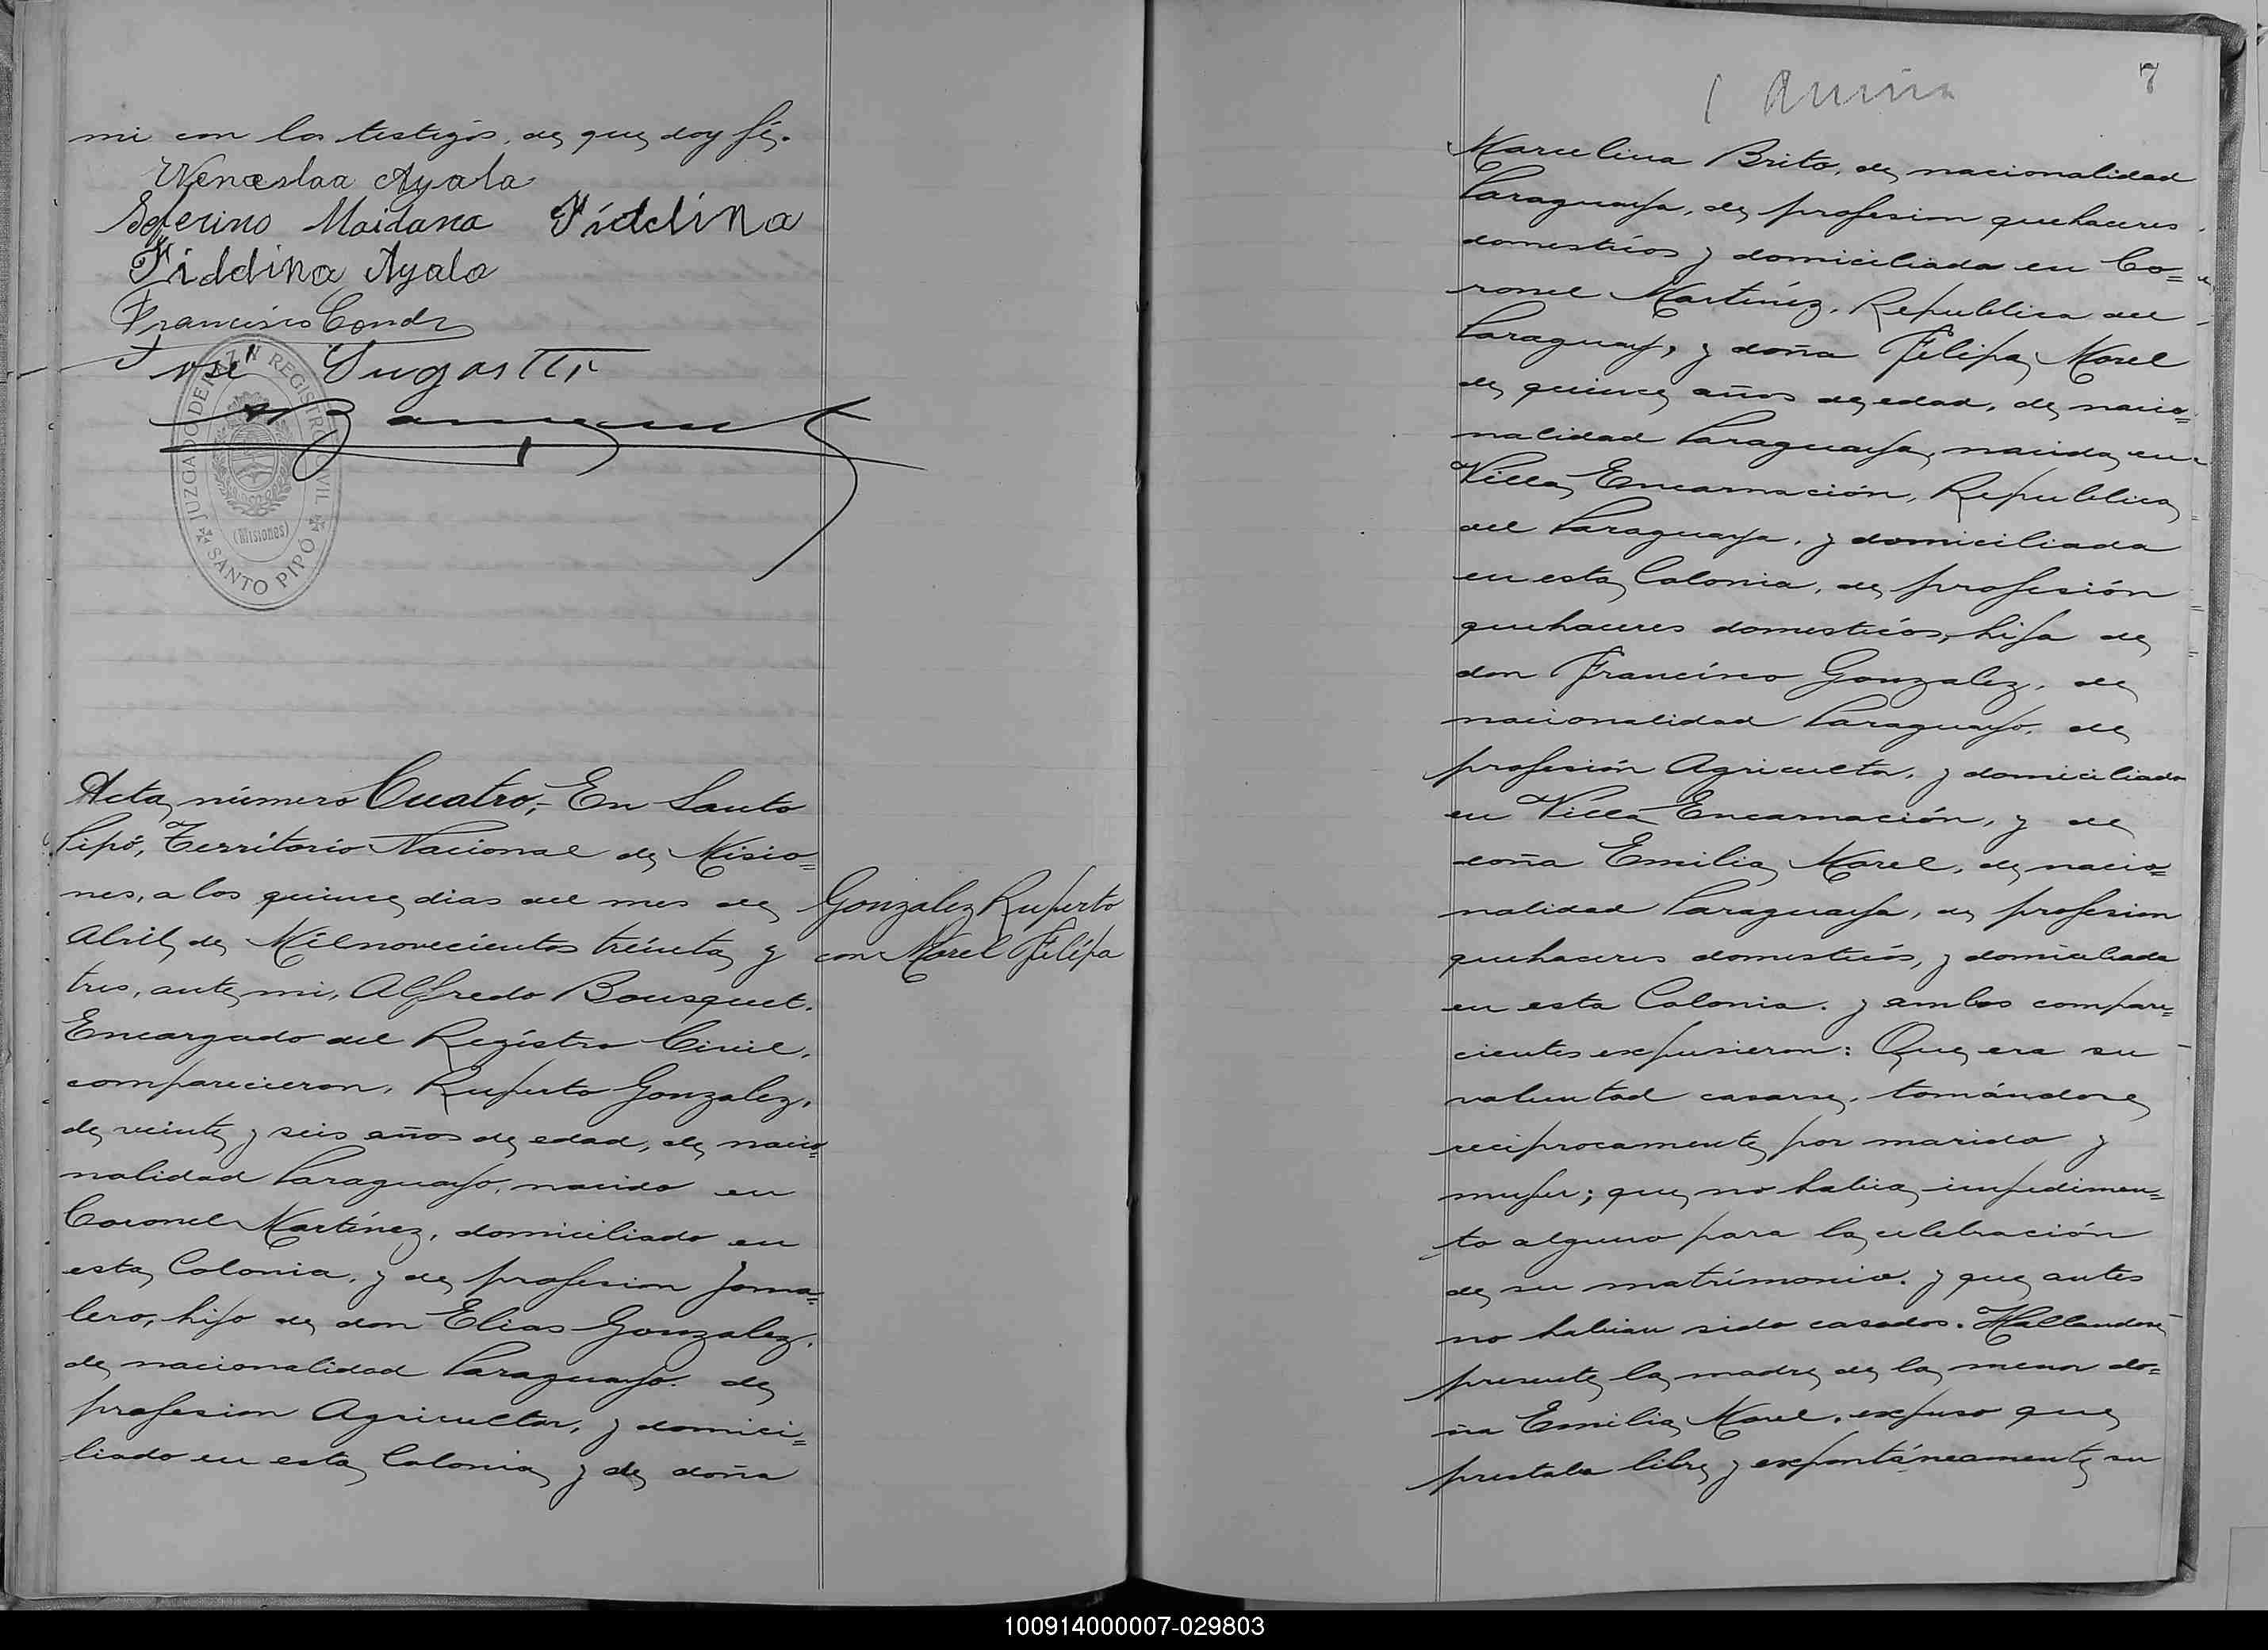 mi con los testigos, de que doy fé.
Wenceslaa Ayala
Seferino Maidana Fidelina
Fidelina Ayala
Francisco Conde
José Lugastti
JUZGADO DE PAZ Y REGISTRO CIVIL
(Misiones)
SANTO PIPÓ
Acta número Cuatro,- En Santo
Pipó, Territorio Nacional de Misio=
nes, a los quince dias del mes de
Abril de Milnovecientos treinta y
tres, ante mi, Alfredo Bousquet.
Encargado del Registro Civil,
comparecieron, Ruperto Gonzalez,
de veinte y seis años de edad, de nacio=
nalidad Paraguayo, nacido en
Coronel Martínez, domiciliado en
esta Colonia, y de profesion Jorna=
lero, hijo de don Elias Gonzalez,
de nacionalidad Paraguayo. de
profesion Agricultor, y domici=
liado en esta Colonia y de doña
Gonzalez Ruperto
con Morel Filipa
7
Marcelina Brito, de nacionalidad
Paraguaya, de profesion quehaceres
domesticos y domiciliada en Co=
ronel Martínez, Republica del
Paraguay, y doña Filipa Morel
de quince años de edad, de nacio=
nalidad Paraguaya, nacida en
Villa Encarnación, Republica
del Paraguaya, y domiciliada
en esta Colonia, de profesión
quehaceres domesticos, hija de
don Francisco Gonzalez, de
nacionalidad Paraguayo, de
profesión Agricultor, y domiciliado
en Villa Encarnación, y de
doña Emilia Morel, de nacio=
nalidad Paraguaya, de profesion
quehaceres domesticos, y domiciliada
en esta Colonia. y ambos compare=
cientes expusieron: Que era su
voluntad casarse, tomándose
reciprocamente por marido y
mujer; que no habia impedimen=
to alguno para la celebración
de su matrimonio. y que antes
no habian sido casados. Hallandose
presente la madre de la menor do=
ña Emilia Morel, expuso que
prestaba libre y expontáneamente su
100914000007-029803